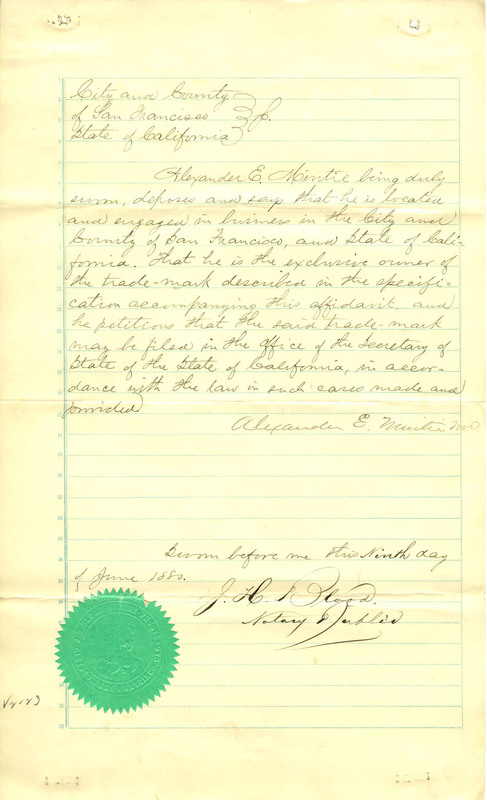 City and County
of San Francisco
State of California
Alexander E. Mintie being duly
sworn, deposes and says that he is located
and engaged in business in the City and
County of San Francisco, and State of Cali-
fornia. That he is the exclusive owner of
the trade-mark described in the specifi-
cation accompanying this affidavit, and
he petitions that the said trade-mark
may be filed in the office of the Secretary of
State of the State of California, in accor-
dance with the law in such cases made and
provided
Alexander E. Mintie M.D.
Sworn before me this Ninth day
of June 1880.
J. H. Blood.
Notary Public